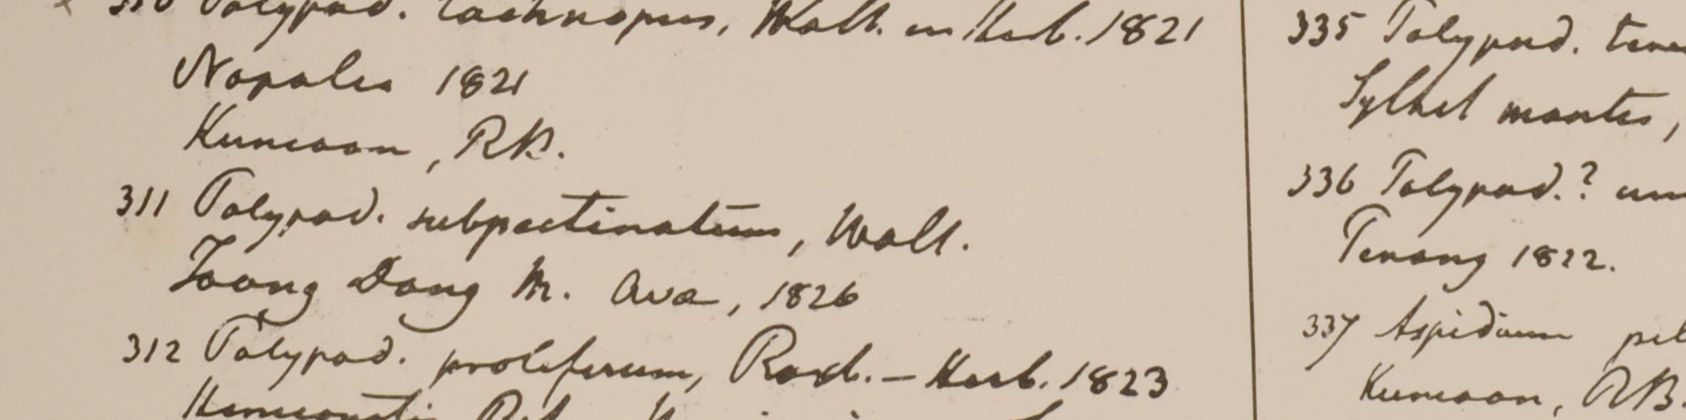 310 Polypod. lachnopus, Wall. in Herb. 1821
Napalia 1821
Kumaon, R.B.
311 Polypod. subpectinatum, Wall.
Toong Dong M. Ava, 1826
312 Polypod. proliferum, Roxb. – Herb. 1823
335 Polypod.
Sylhet montes,
336 Polypod.?
Penang 1822.
337 Aspidium
Kumaon, R.B.